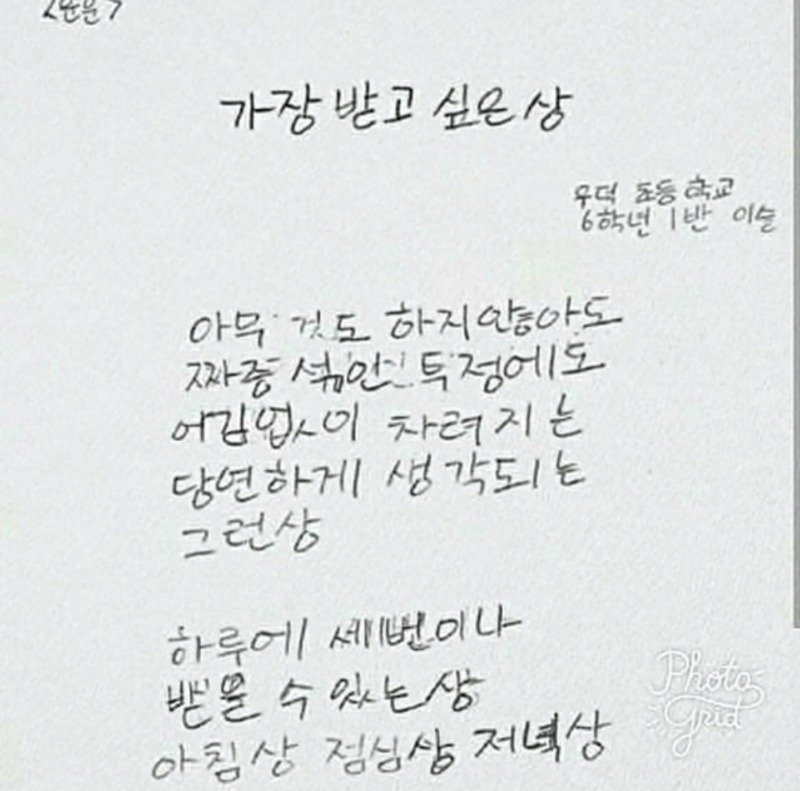 <운문>
가장 받고 싶은 상
우덕 초등학교
6학년 1반 이슬
아무 것도 하지않아도
짜증 섞인 투정에도
어김없이 차려지는
당연하게 생각되는
그런상
하루에 세번이나
받을 수 있는상
아침상 점심상 저녁상
Photo
Grid